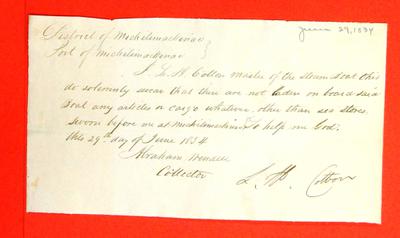 June 29, 1834
District of Michilimackinac }
Port of Michilimackinac }
I L. H. Cotton master of the Steam boat Ohio
do solemnly swear that there are not laden on board said
boat any articles or cargo whatever, other than sea stores.
Sworn before me at Michilimackinac So help me God;
this 29th day of June 1834.
Abraham Wendell
Collector
L. H. Cotton